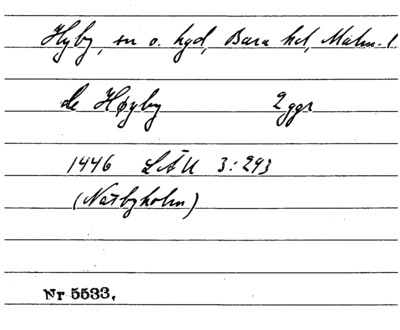 Hyby, sn o. kyd, Bara hd, Malm. l.
de Høyby 2 ggr
1446 LÄU 3:293
(Näsbyholm)
Nr 5533.